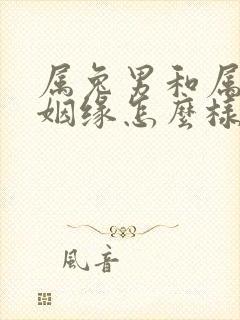 属兔男和属
姻缘怎麽樣
風音